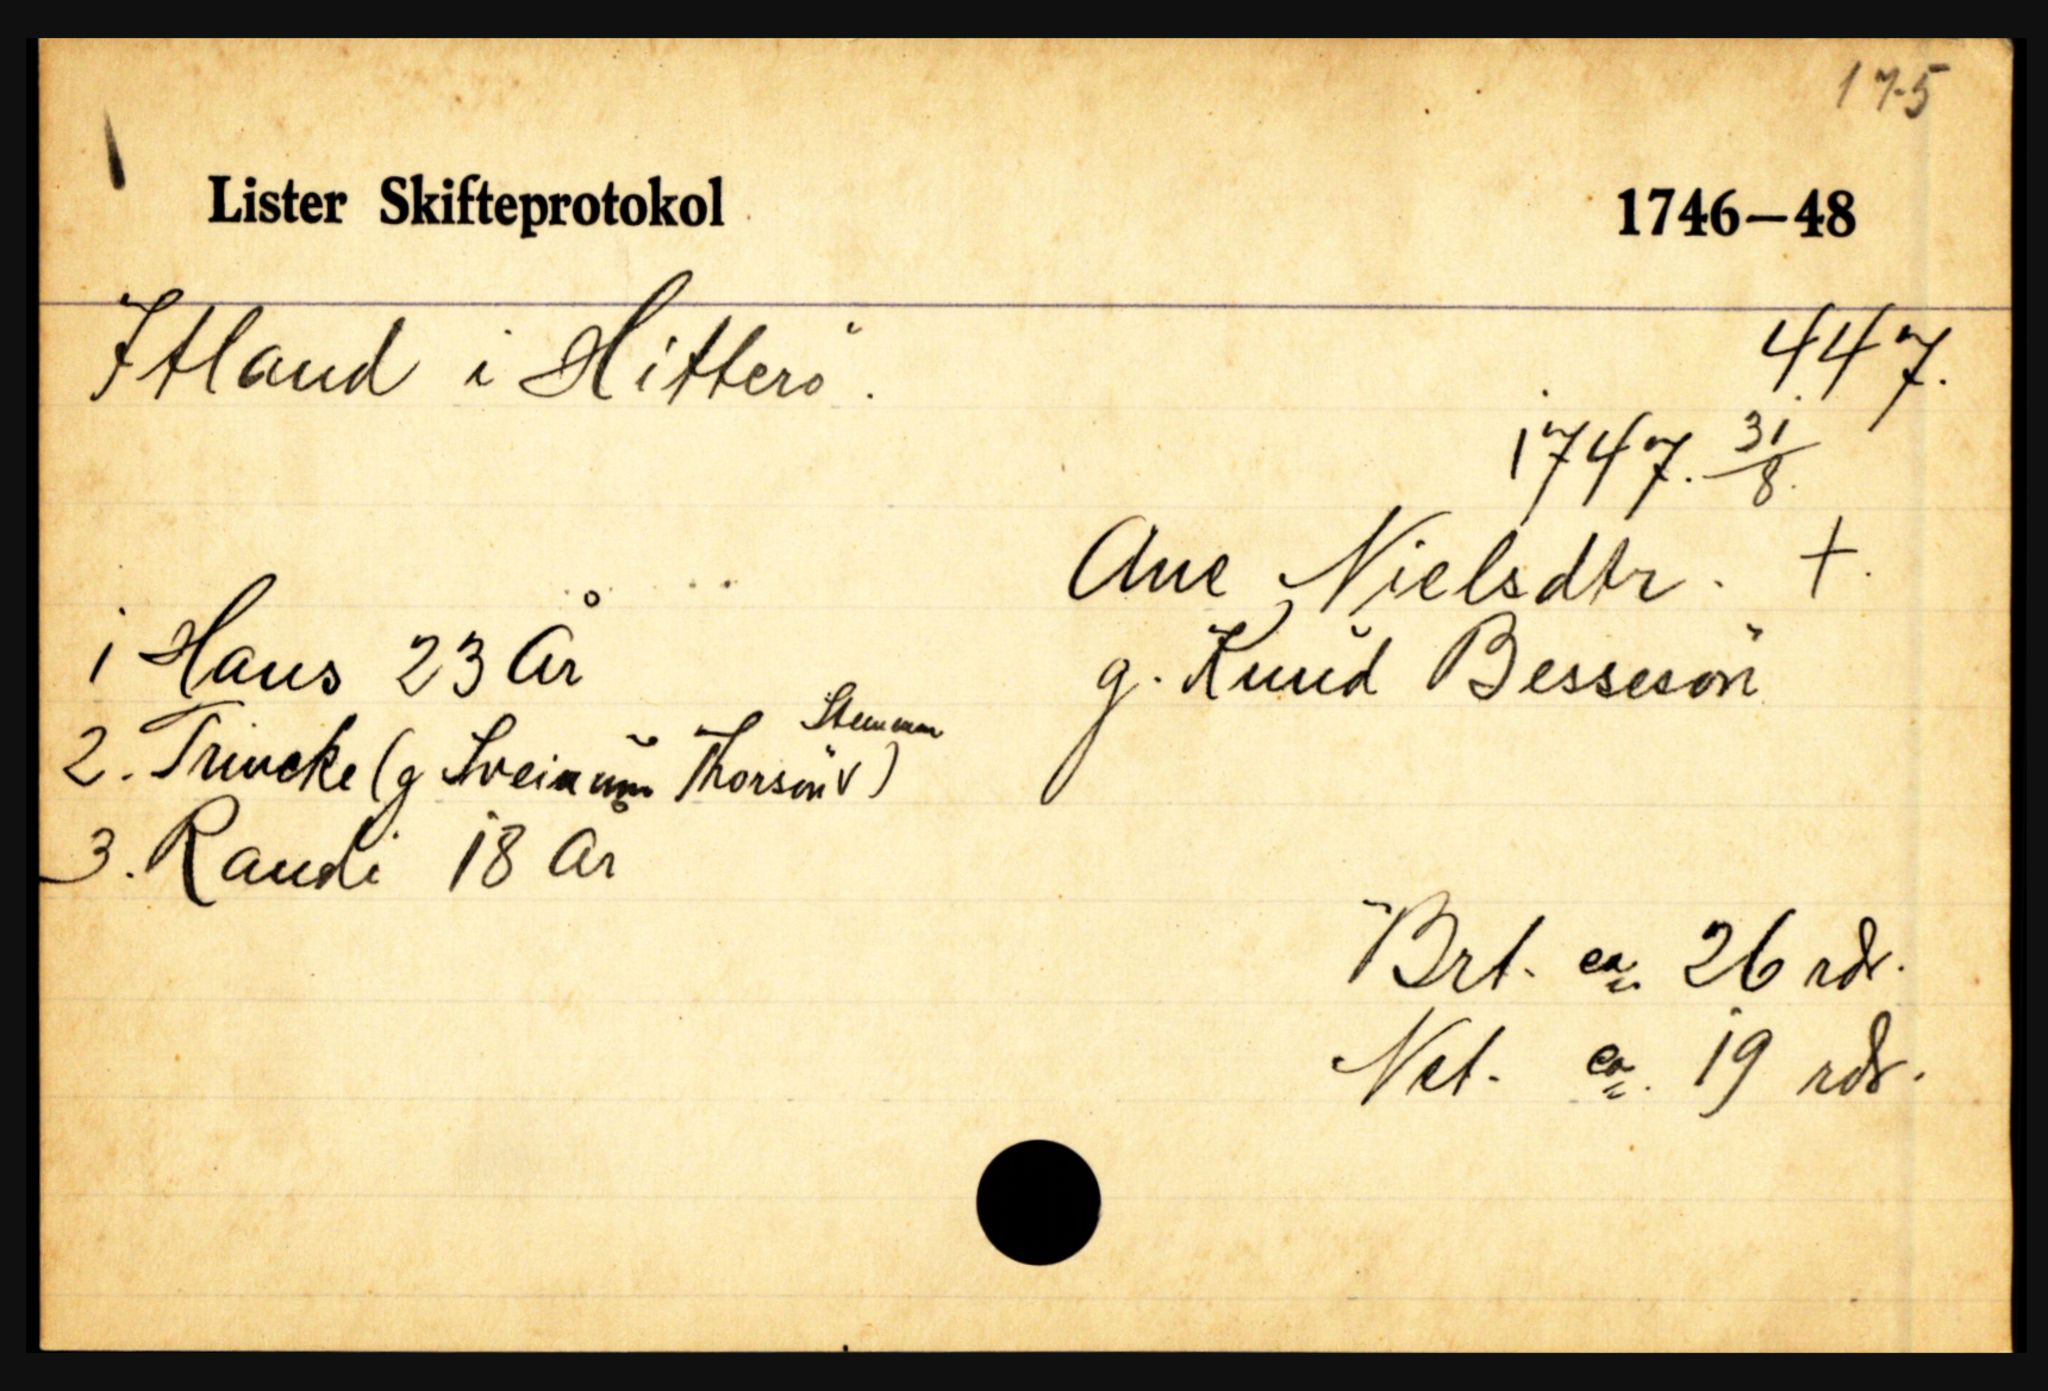 175
Lister Skifteprotokol 1746–48
Itland i Hitterö.
447.
1747. 31/8.
Ane Nielsdtr. +.
1 Hans 23 År
g. Knud Bessesön
2. Trincke (g Sveinum Thorsön)
3. Randi 18 År
Brt. ca. 26 rdr.
Net. ca. 19 rdr.